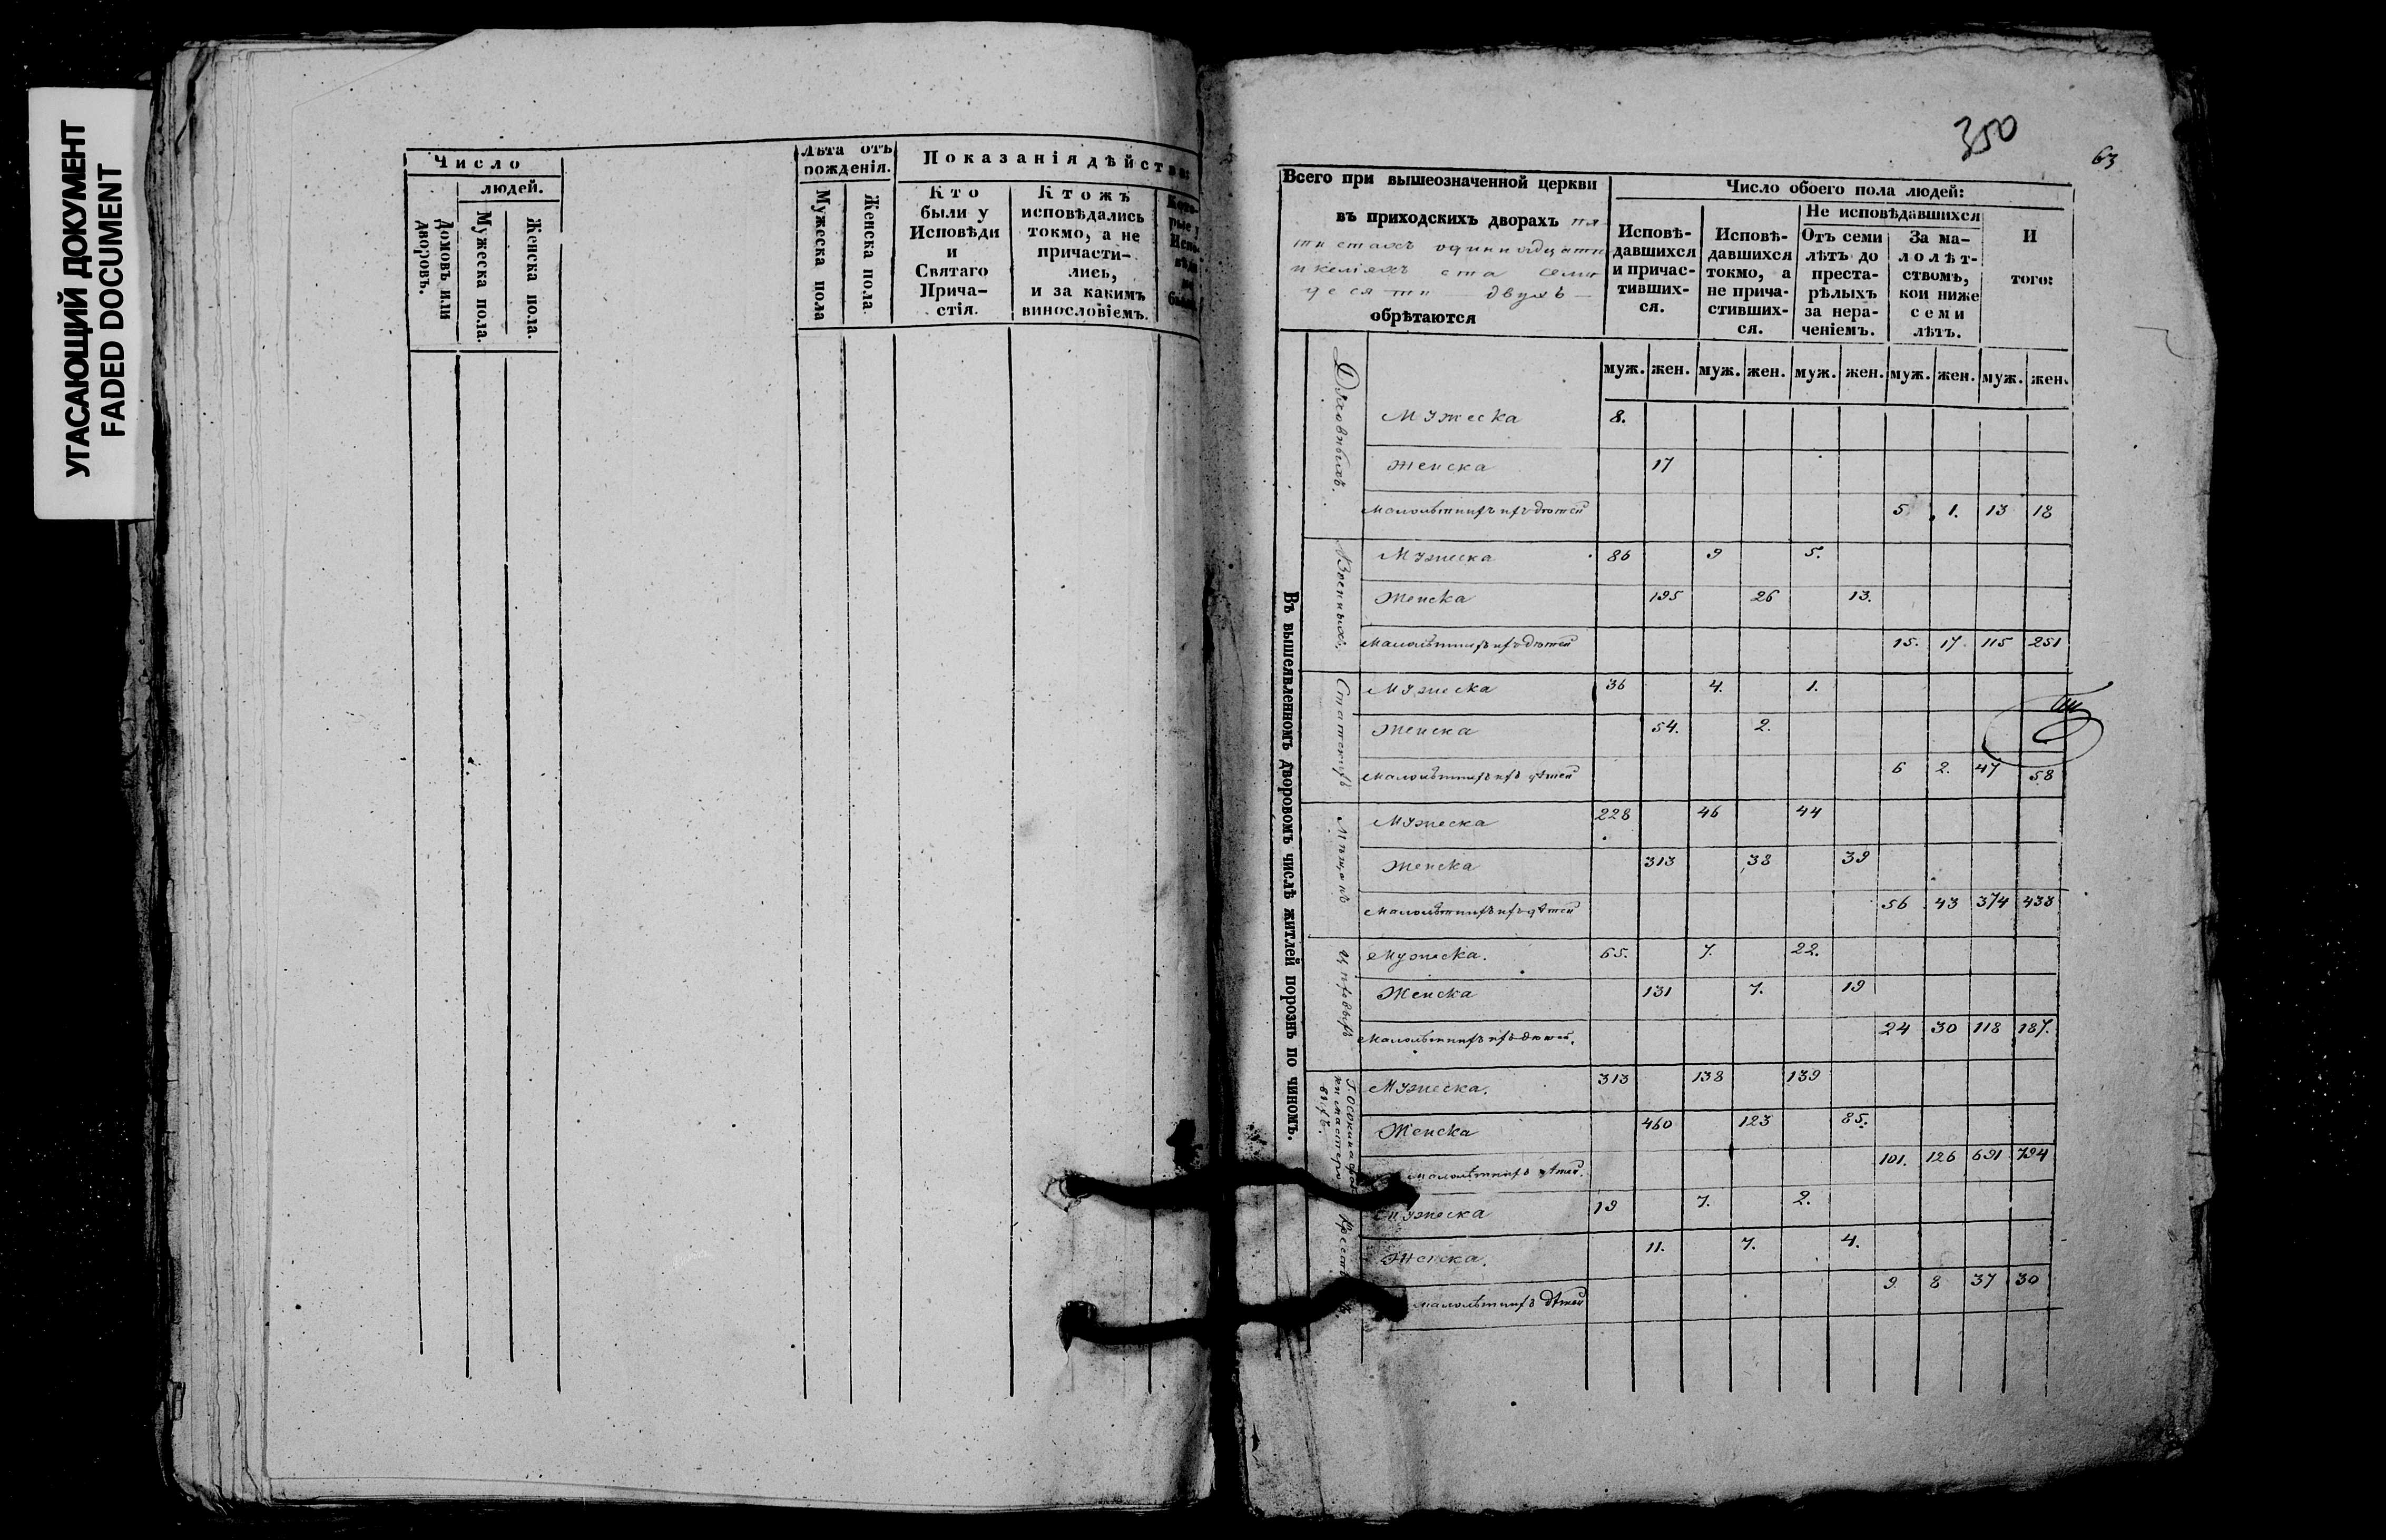 УГАСАЮЩИЙ ДОКУМЕНТ
FADED DOCUMENT
Число
людей.
Домовъ или
дворовъ.
Мужеска пола.
Женска пола.
Лѣта отъ
рожденія.
Мужеска пола
Женска пола
Показанія дѣйства:
Кто
были у
Исповѣди
и
Святаго
Прича-
стія.
Ктожъ
исповѣдались
токмо, а не
причасти-
лись,
и за какимъ
винословіемъ.
350
63
Всего при вышеозначенной церкви
въ приходскихъ дворахъ пя-
ти стахъ одиннадцати
и келіяхъ ста семи
десяти двухъ
обрѣтаются
Число обоего пола людей:
Исповѣ-
давшихся
и причас-
тивших-
ся.
Исповѣ-
давшихся
токмо, а
не прича-
стивших-
ся.
Не исповѣдавшихся
Отъ семи
лѣтъ до
преста-
рѣлыхъ
за нера-
ченіемъ.
За ма-
лолѣт-
ствомъ,
кои ниже
семи
лѣтъ.
И
того:
муж. жен. муж. жен. муж. жен. муж. жен. муж. жен.
Въ вышеявленномъ дворовомъ числѣ житлей порознь по чиномъ.
Духовныхъ.
Мужеска 8.
Женска 17
Малолѣтнихъ ихъ дѣтей 5 1. 13 18
Военныхъ.
Мужеска 86 9 5.
Женска 195 26 13.
Малолѣтнихъ ихъ дѣтей 15. 17. 115 251
Статскихъ
Мужеска 36 4. 1.
Женска 54. 2.
Малолѣтнихъ ихъ дѣтей 6 2. 47 58
Мѣщанъ
Мужеска 228 46 44
Женска 313 38 39
Малолѣтнихъ ихъ дѣтей 56 43 374 433
Цѣховыхъ
Мужеска. 65. 7. 22.
Женска 131 7. 19
Малолѣтнихъ ихъ дѣтей. 24 30 118 187.
Мужеска. 313 138 139
Женска 460 123 85.
малолѣтнихъ дѣтей. 101. 126 691 794
Мужеска 19 7. 2.
Женска. 11. 7. 4.
малолѣтнихъ дѣтей 9 8 37 30